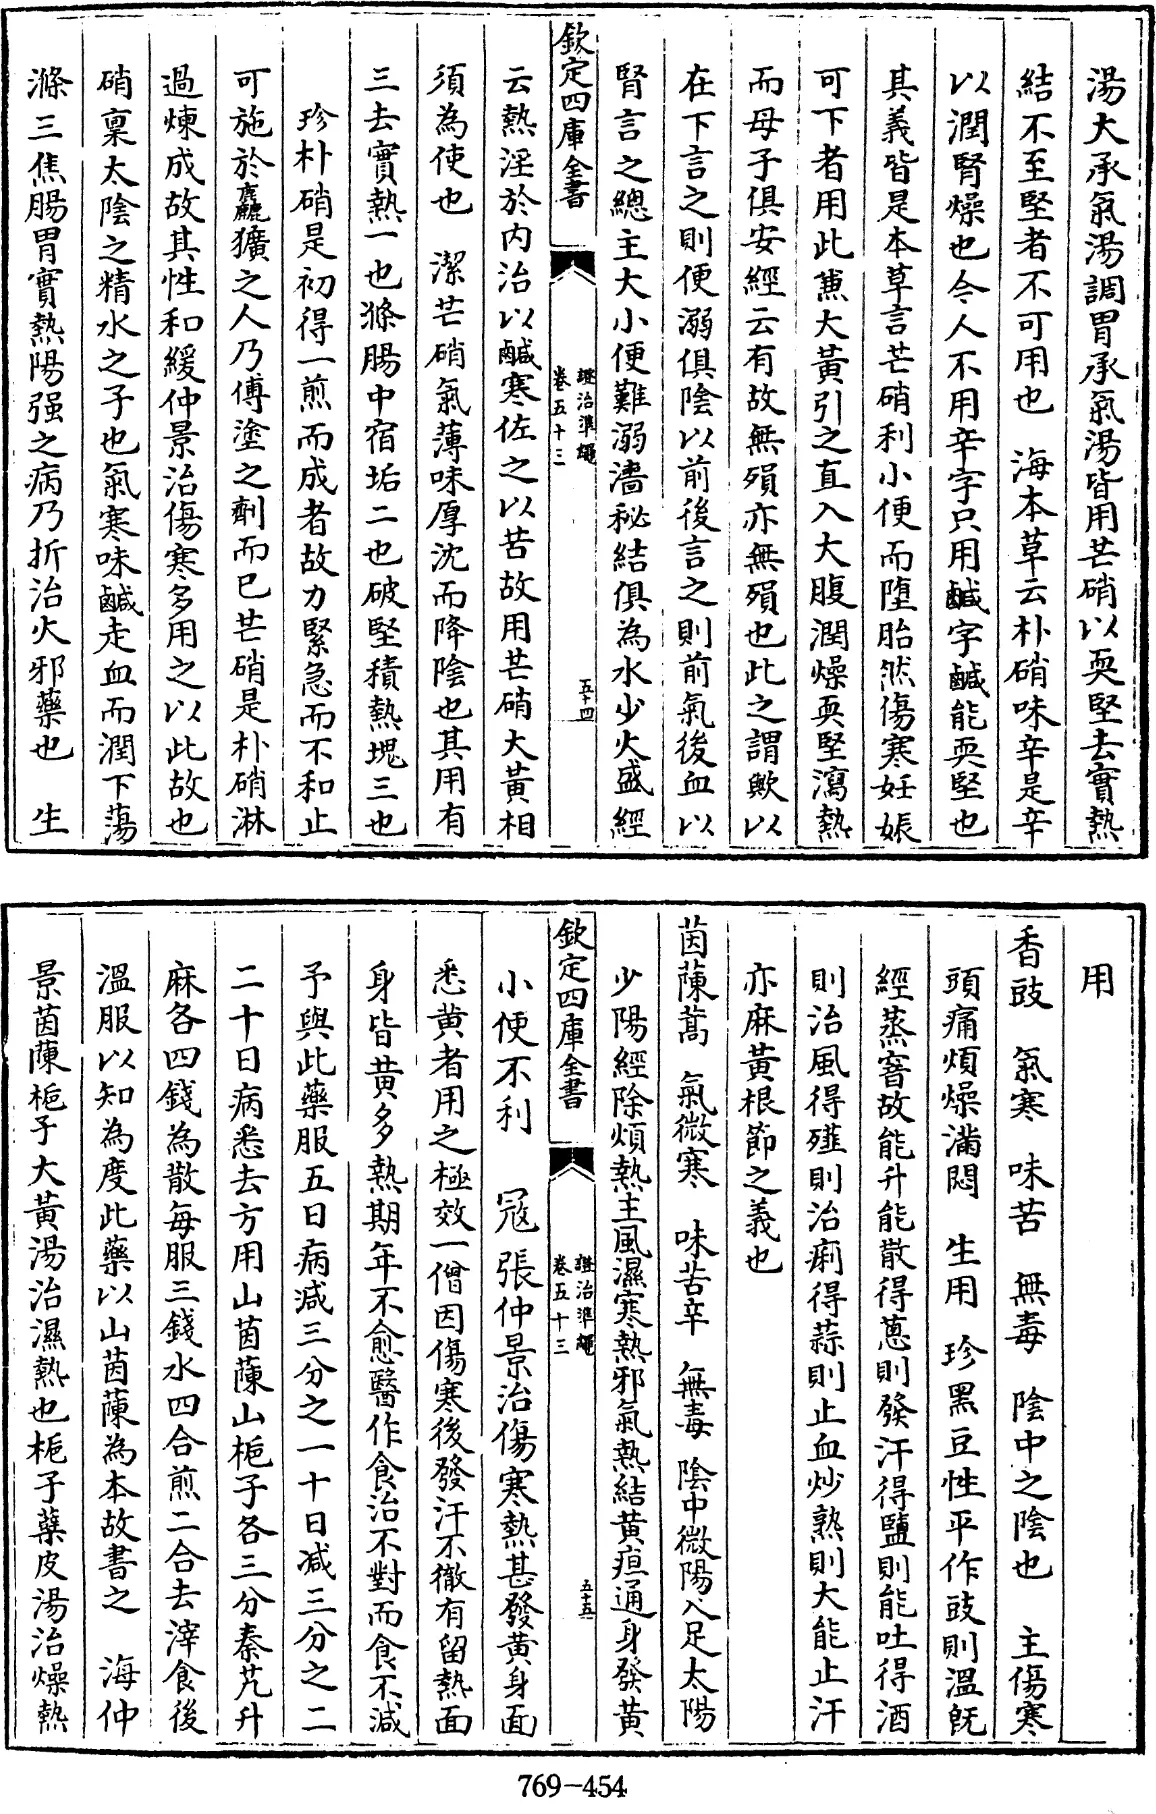 湯大承氣湯調胃承氣湯皆用芒硝以耎堅去實熱
結不至堅者不可用也　海本草云朴硝味辛是辛
以潤腎燥也今人不用辛字只用鹹字鹹能耎堅也
其義皆是本草言芒硝利小便而墮胎然傷寒妊娠
可下者用此蕙大黃引之直入大腹潤燥耎堅瀉熱
而母子俱安經云有故無殞亦無殞也此之謂歟以
在下言之則便溺俱陰以前後言之則前氣後血以
腎言之總主大小便難溺濇秘結俱為水少火盛經
欽定四庫全書
證治準繩
卷五十三
五十四
云熱淫於内治以鹹寒佐之以苦故用芒硝大黃相
須為使也　潔芒硝氣薄味厚沈而降陰也其用有
三去實熱一也滌腸中宿垢二也破堅積熱塊三也
珍朴硝是初得一煎而成者故力緊急而不和止
可施於麤獷之人乃傅塗之劑而已芒硝是朴硝淋
過煉成故其性和緩仲景治傷寒多用之以此故也
硝稟太陰之精水之子也氣寒味鹹走血而潤下蕩
滌三焦腸胃實熱陽强之病乃折治火邪藥也　生
用
香豉　氣寒　味苦　無毒　陰中之陰也　主傷寒
頭痛煩燥滿悶　生用　珍黑豆性平作豉則溫既
經蒸窨故能升能散得葱則發汗得鹽則能吐得酒
則治風得薤則治痢得蒜則止血炒熟則大能止汗
亦麻黃根節之義也
茵蔯蒿　氣微寒　味苦辛　無毒　陰中微陽入足太陽
少陽經除煩熱主風濕寒熱邪氣熱結黃疸通身發黃
欽定四庫全書
證治準繩
卷五十三
五十五
小便不利　冦張仲景治傷寒熱甚發黃身面
悉黃者用之極效一僧因傷寒後發汗不徹有留熱面
身皆黃多熱期年不愈醫作食治不對而食不減
予與此藥服五日病減三分之一十日減三分之二
二十日病悉去方用山茵蔯山梔子各三分秦艽升
麻各四錢為散每服三錢水四合煎二合去滓食後
溫服以知為度此藥以山茵蔯為本故書之　海仲
景茵蔯梔子大黃湯治濕熱也梔子蘗皮湯治燥熱
769-454